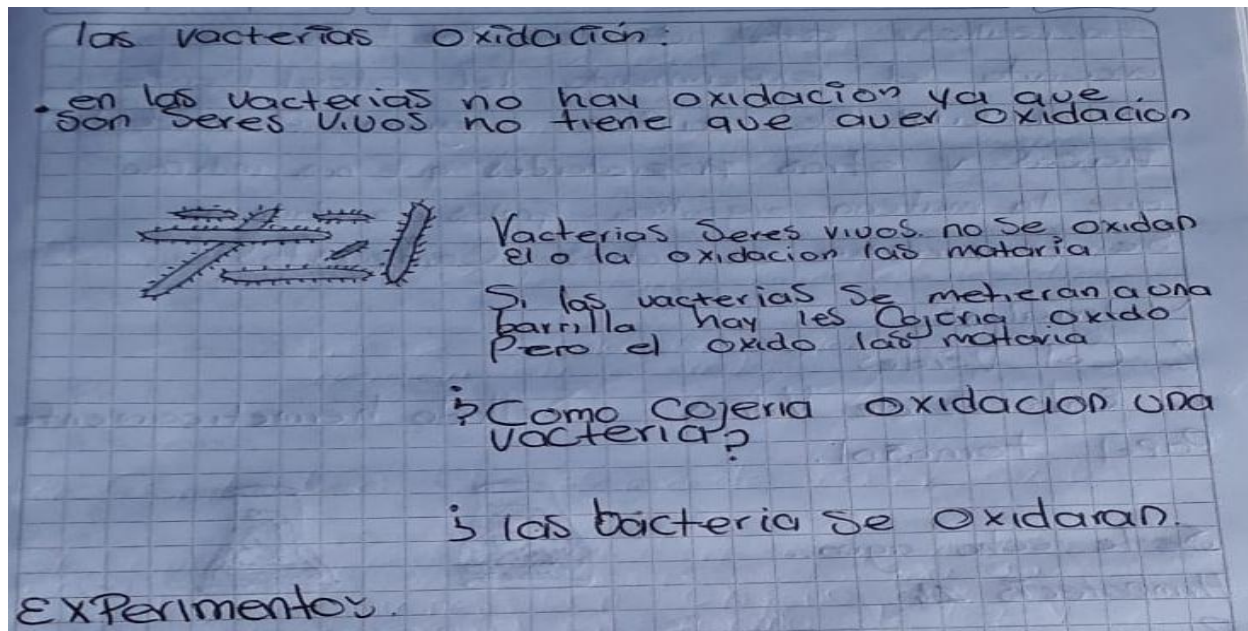 las vacterias oxidación:
• en las vacterias no hay oxidacion ya que
son seres vivos no tiene que auer oxidacion
Vacterias seres vivos no se oxidan
el o la oxidacion las mataria
Si las vacterias se metieran a una
barrilla hay les cojeria oxido
Pero el oxido las mataria
¿Como cojeria oxidacion una
vacteria?
¿ las bacteria se oxidaran.
Experimentos.